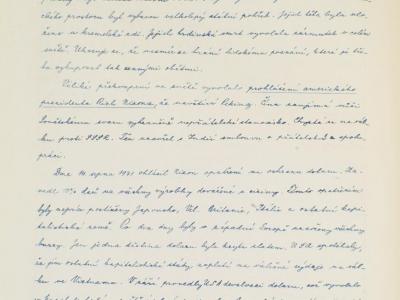 ného prostoru byl vykonán velkolepý státní pohřeb. Jejich těla byla ulo-
žena v kremelské zdi. Jejich hrdinská smrt vyvolala zármutek v celém
světě. Ukazuje se, že vesmír se brání lidskému poznání, které si tře-
ba vykupovat tak cennými obětmi.
Veliké překvapení na světě vyvolalo prohlášení amerického
presidenta Nixona, že navštíví Peking. Čína zaujímá vůči
Sovětskému svazu vyhraněné nepřátelské stanovisko. Chystá se na vál-
ku proti SSSR. Ten uzavřel s Indií smlouvu o přátelství a spolu-
práci.
Dne 14. srpna 1971 ohlásil Nixon opatření na ochranu dolaru. Za-
vedl 10% clo na všechny výrobky dovážené z ciziny. Tímto opatřením
byly nejvíce postiženy Japonsko, Vel. Britanie, Itálie a ostatní kapi-
talistické země. Co dva dny byly v západní Evropě uzavřeny všechny
bursy. Jen jedna třetina dolaru byla kryta zlatem. USA spoléhaly,
že jim ostatní kapitalistické státy zaplatí na válečné výdaje na vál-
ku ve Vietnamu. V září provedly USA devalvaci dolaru, což vyvolalo